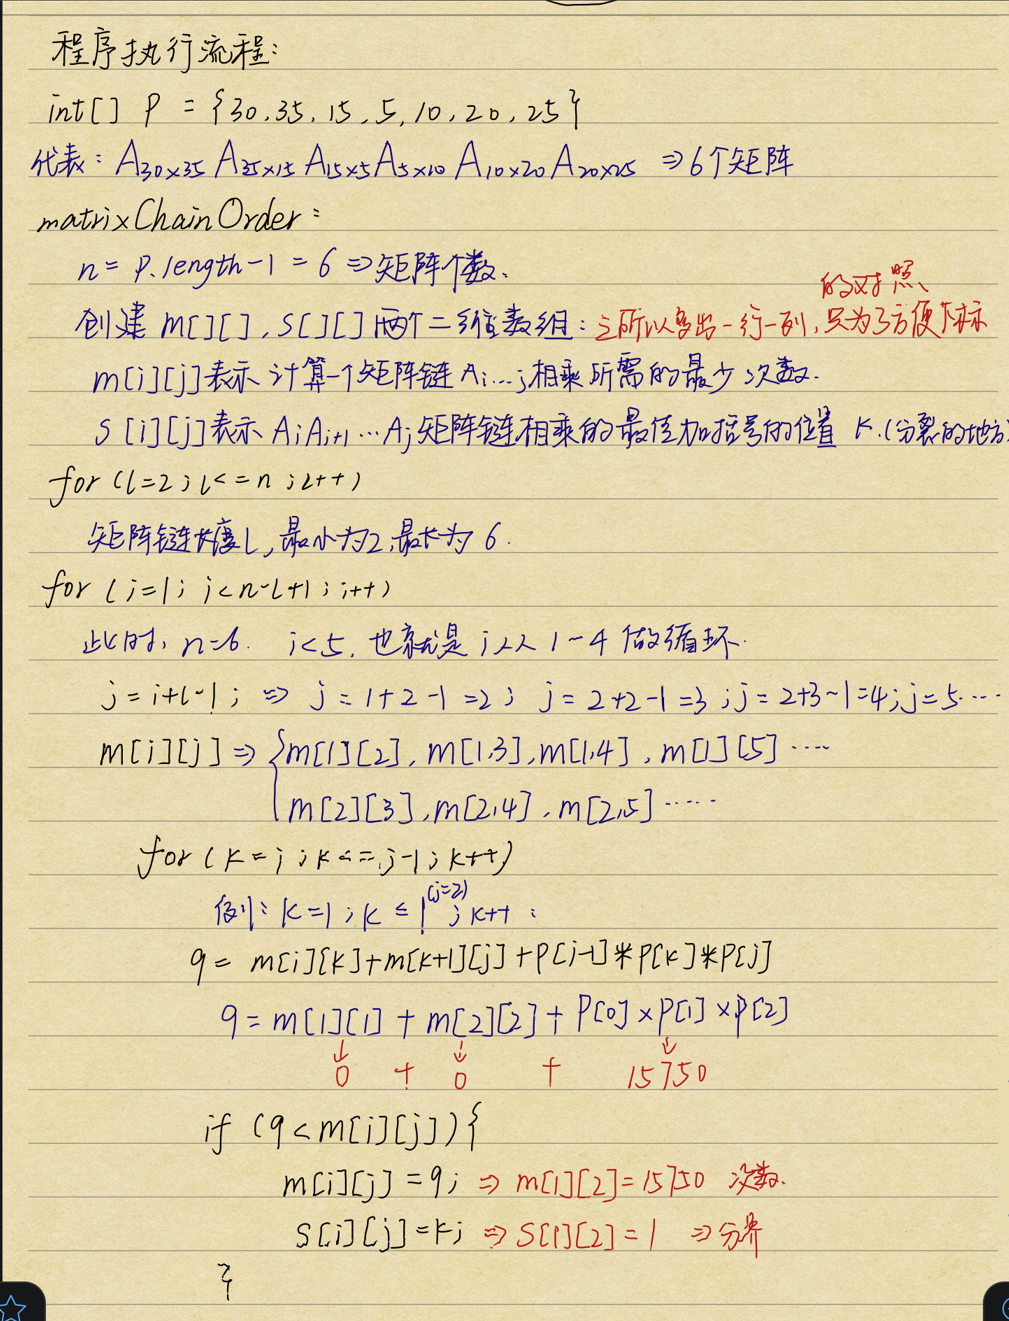 程序执行流程:
int[] P = {30,35,15,5,10,20,25}
代表: A30×35 A35×15 A15×5 A5×10 A10×20 A20×25 ⇒ 6个矩阵
matrixChainOrder:
n = P.length-1 = 6 ⇒ 矩阵个数.
的对照、
创建 m[][], S[][] 两个二维数组: 之所以多出一行一列, 只为了方便下标
m[i][j]表示计算一个矩阵链 Ai...j相乘所需的最少次数.
S[i][j]表示 AiAi+1...Aj矩阵链相乘的最佳加括号的位置 k.(分裂的地方)
for (l=2; l<=n; l++)
矩阵链长度l, 最小为2, 最长为6.
for (i=1; i<n-l+1; i++)
此时, n=6. i<5, 也就是i从1~4做循环.
j=i+l-1; ⇒ j=1+2-1=2; j=2+2-1=3; j=2+3-1=4; j=5....
m[i][j] ⇒ { m[1][2], m[1,3], m[1,4], m[1][5]....
m[2][3], m[2,4], m[2,5].....
for (k=i; k<=j-1; k++)
(j=2)
例: k=1; k≤1; k++:
q = m[i][k]+m[k+1][j]+P[i-1]*P[k]*P[j]
q = m[1][1] + m[2][2] + P[0]×P[1]×P[2]
↓ ↓ ↓
0 + 0 + 15750
if (q<m[i][j]){
m[i][j]=q; ⇒ m[1][2]=15750 次数.
S[i][j]=k; ⇒ S[1][2]=1 ⇒分界
}